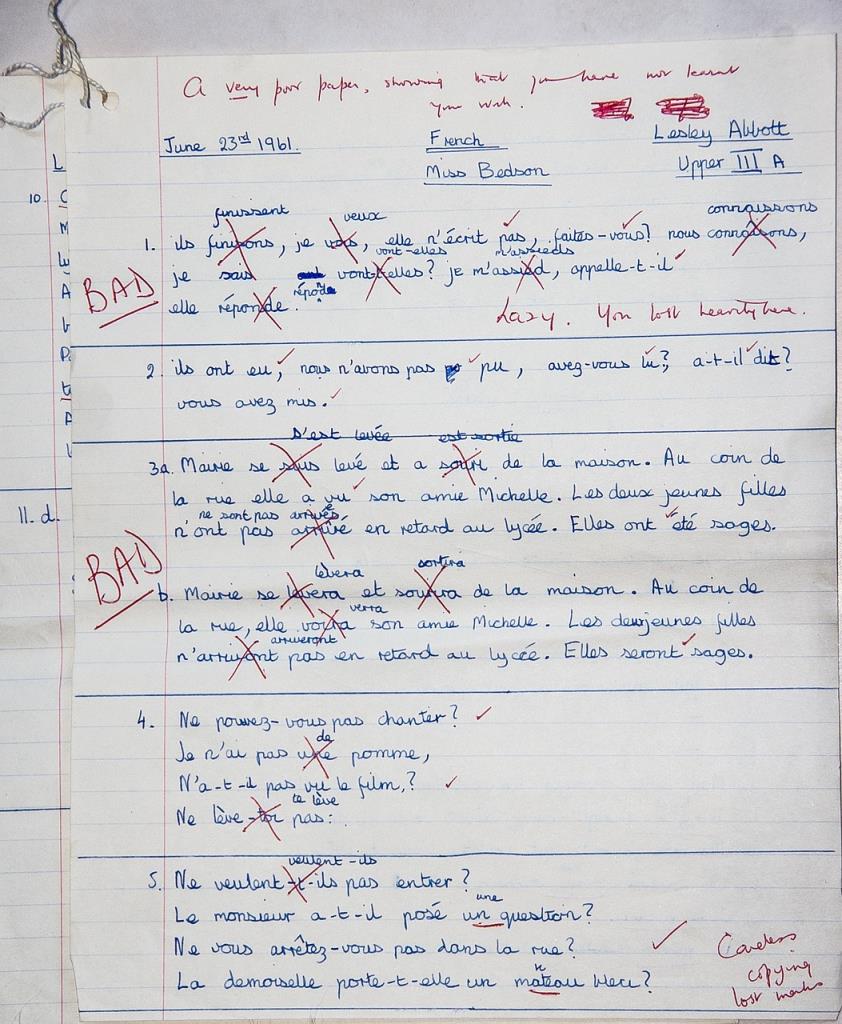 A very poor paper, showing that you have not learnt
your work.
June 23rd 1961.
French
Lesley Abbott
Miss Bedson
Upper III A
finissent veux connaissons
1. ils finisons, je vois, elle n'écrit pas, faites-vous? nous connaisons,
vont-elles m'assieds
je sais vont-t-elles? je m'assied, appelle-t-il
BAD
elle réponde.
Lazy. You lost heavily here.
2. ils ont eu, nous n'avons pas pu, avez-vous lu?, a-t-il dit?
vous avez mis.
s'est levée est sortie
3a. Mairie se levé et a souri de la maison. Au coin de
la rue elle a vu son amie Michelle. Les deux jeunes filles
ne sont pas arrivés
n'ont pas arrivé en retard au lycée. Elles ont été sages.
BAD
lèvera sortira
b. Mairie se levera et sourira de la maison. Au coin de
verra
la rue, elle voira son amie Michelle. Les deuxjeunes filles
arriveront
n'arrivont pas en retard au lycée. Elles seront sages.
4. Ne pouvez-vous pas chanter?
de
Je n'ai pas une pomme,
N'a-t-il pas vu le film,?
te lève
Ne lève-toi pas:
veulent-ils
5. Ne veulent-t-ils pas entrer?
une
Le monsieur a-t-il posé un question?
Ne vous arrêtez-vous pas dans la rue?
La demoiselle porte-t-elle un mateau bleu?
Careless
copying
lost marks
10.
11. d.